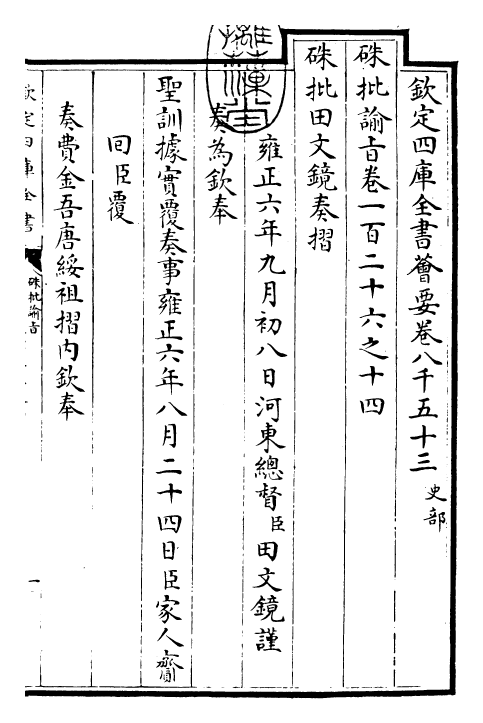 欽定四庫全書薈要卷八千五十三 史部
硃批諭旨卷一百二十六之十四
硃批田文鏡奏摺
雍正六年九月初八日河東總督臣田文鏡謹
奏為欽奉
聖訓據實覆奏事雍正六年八月二十四日臣家人齎
回臣覆
奏費金吾唐綏祖摺內欽奉
欽定四庫全書
硃批諭旨
一